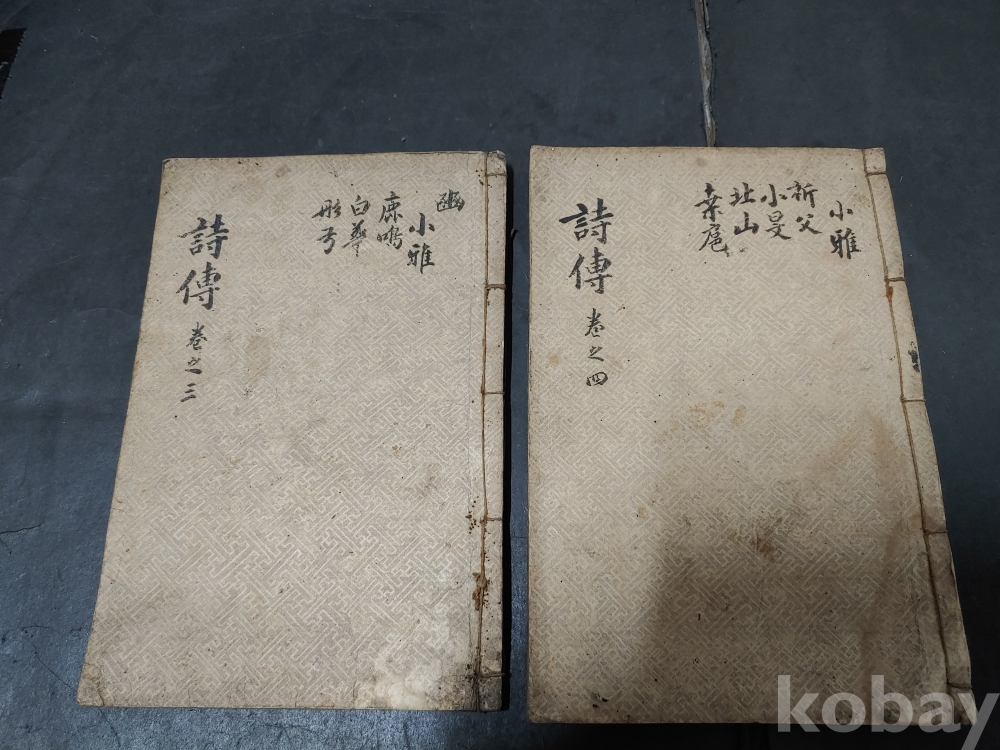 豳
小雅
鹿鳴
白華
彤弓
詩傳 卷之三
小雅
祈父
小旻
北山
桑扈
詩傳 卷之四
kobay